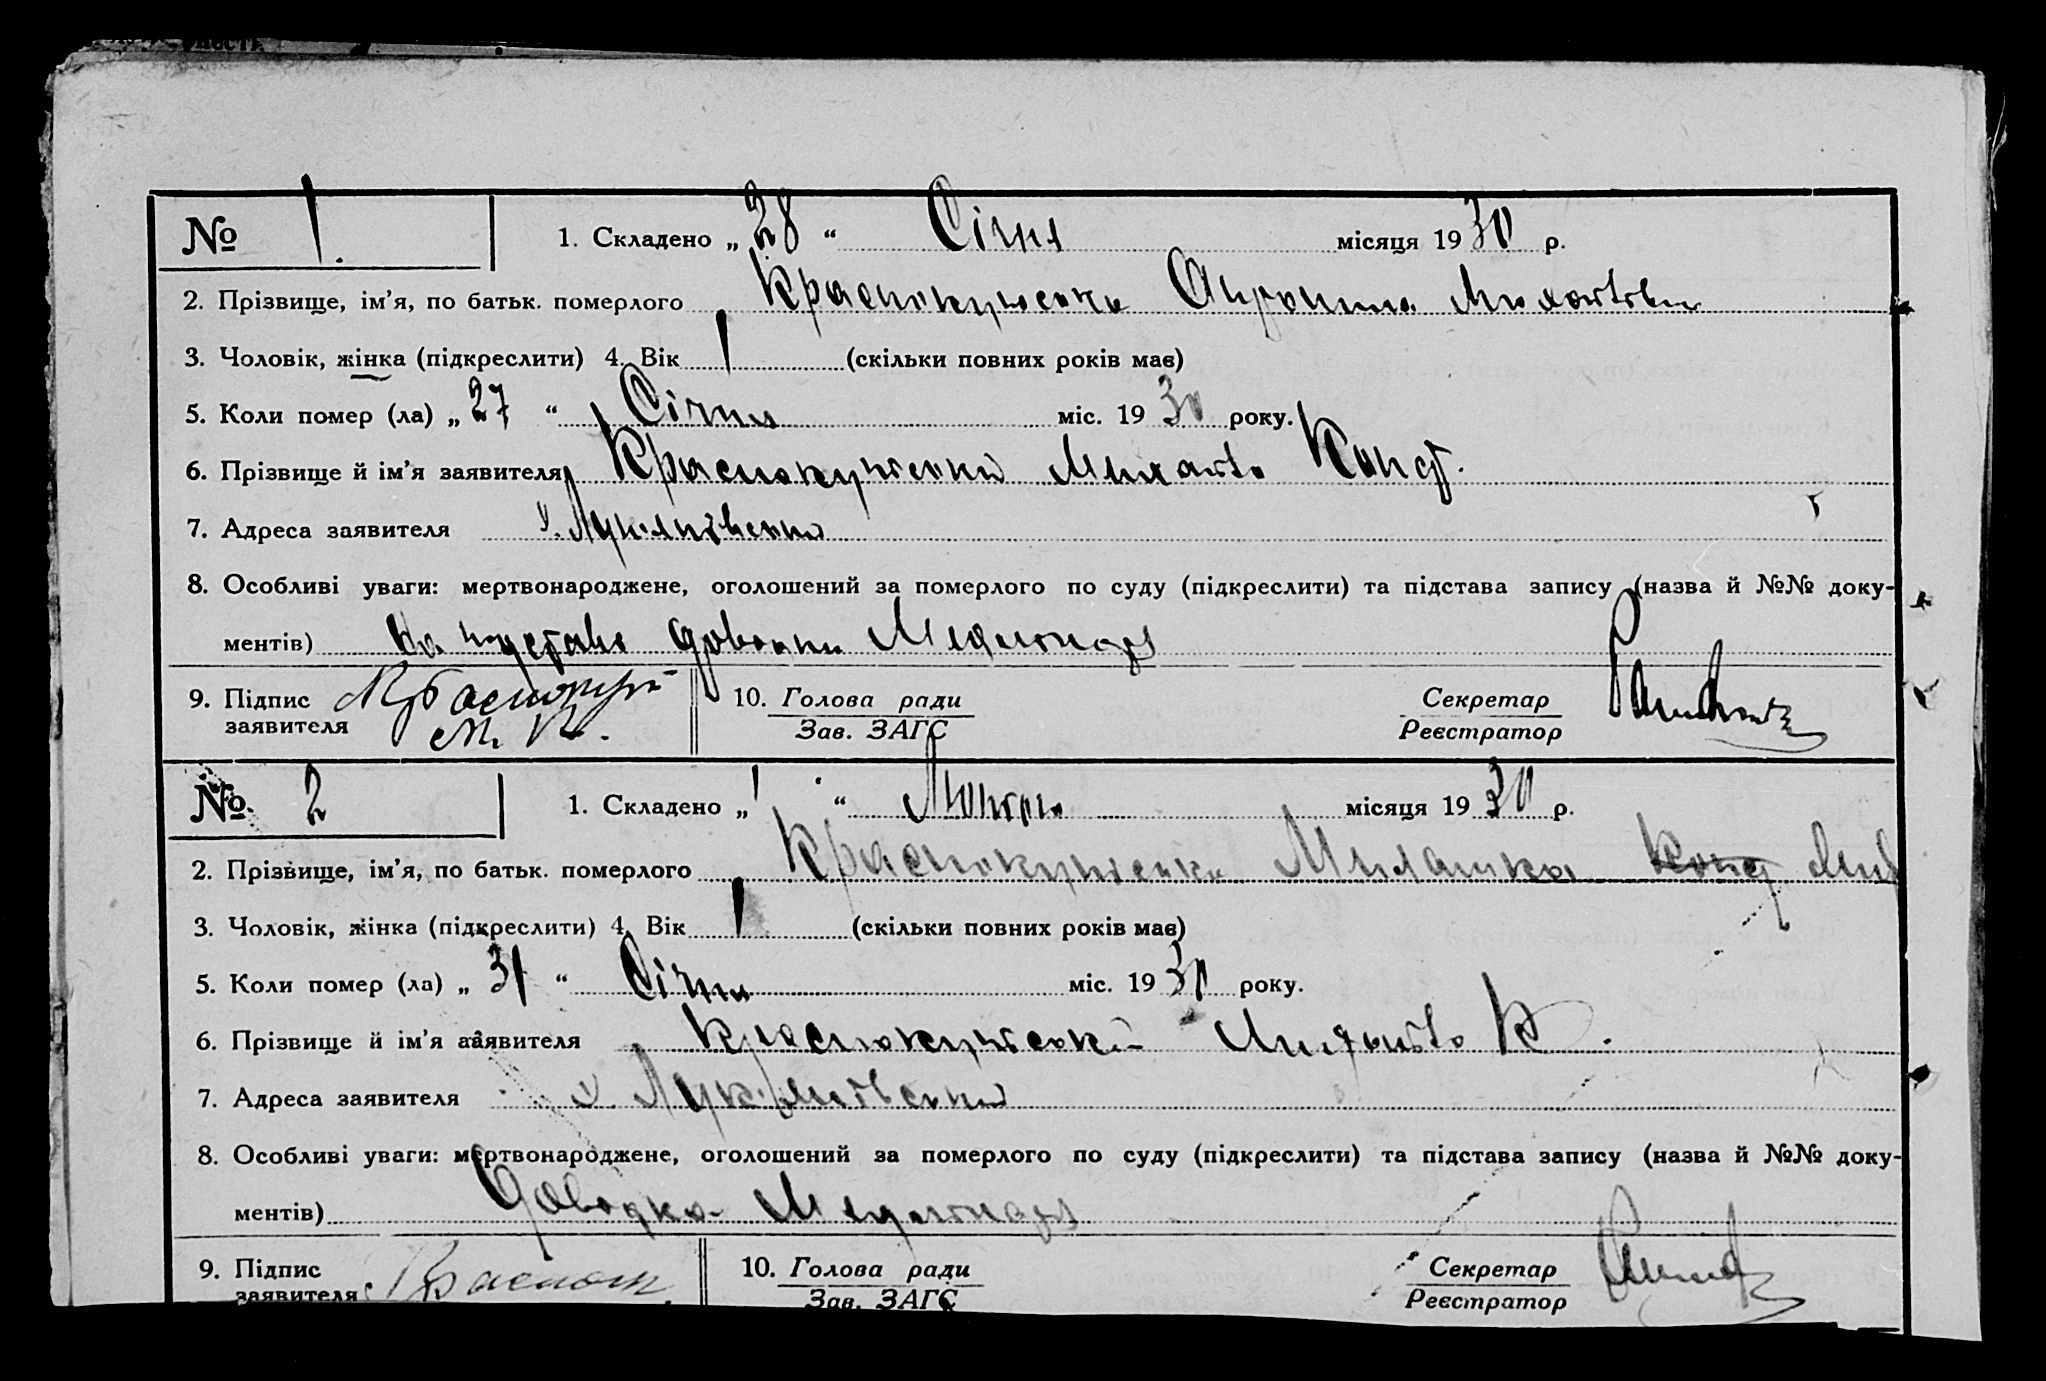 № 1. 1. Складено „28“ Січня місяця 1930 р.
2. Прізвище, ім’я, по батьк. померлого Краснокутська Михайлівна
3. Чоловік, жінка (підкреслити) 4. Вік 1 (скільки повних років має)
5. Коли помер (ла) „27“ Січня міс. 1930 року.
6. Прізвище й ім’я заявителя Краснокутський Михайло Конд.
7. Адреса заявителя х.
8. Особливі уваги: мертвонароджене, оголошений за померлого по суду (підкреслити) та підстава запису (назва й №№ доку-
ментів) На підставі довідки
9. Підпис 10. Голова ради Секретар
заявителя М. К. Зав. ЗАГС Реєстратор
№ 2 1. Складено „1“ Лютого місяця 1930 р.
2. Прізвище, ім’я, по батьк. померлого Краснокутська Конд Мих
3. Чоловік, жінка (підкреслити) 4. Вік 1 (скільки повних років має)
5. Коли помер (ла) „31“ Січня міс. 1930 року.
6. Прізвище й ім’я заявителя Краснокутський Михайло К.
7. Адреса заявителя х.
8. Особливі уваги: мертвонароджене, оголошений за померлого по суду (підкреслити) та підстава запису (назва й №№ доку-
ментів) Довідка
9. Підпис 10. Голова ради Секретар
заявителя Зав. ЗАГС Реєстратор